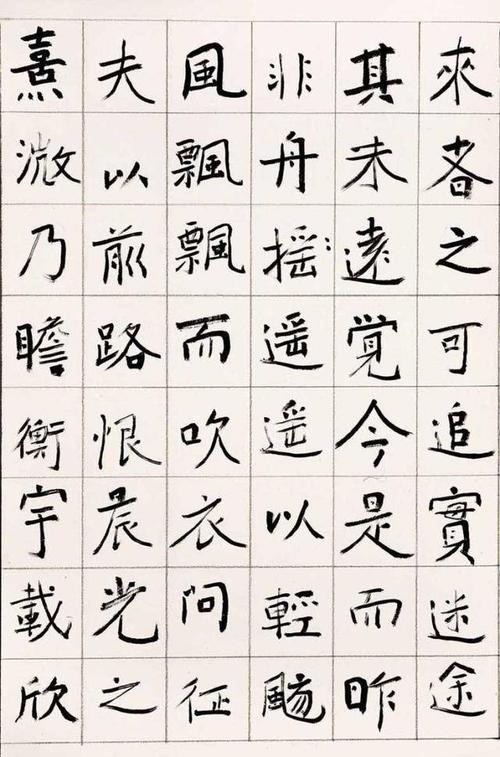 來者之可追實迷途
其未遠覚今是而昨
非舟摇遥遥以輕颺
風飄飄而吹衣问征
夫以前路恨晨光之
熹微乃瞻衡宇載欣